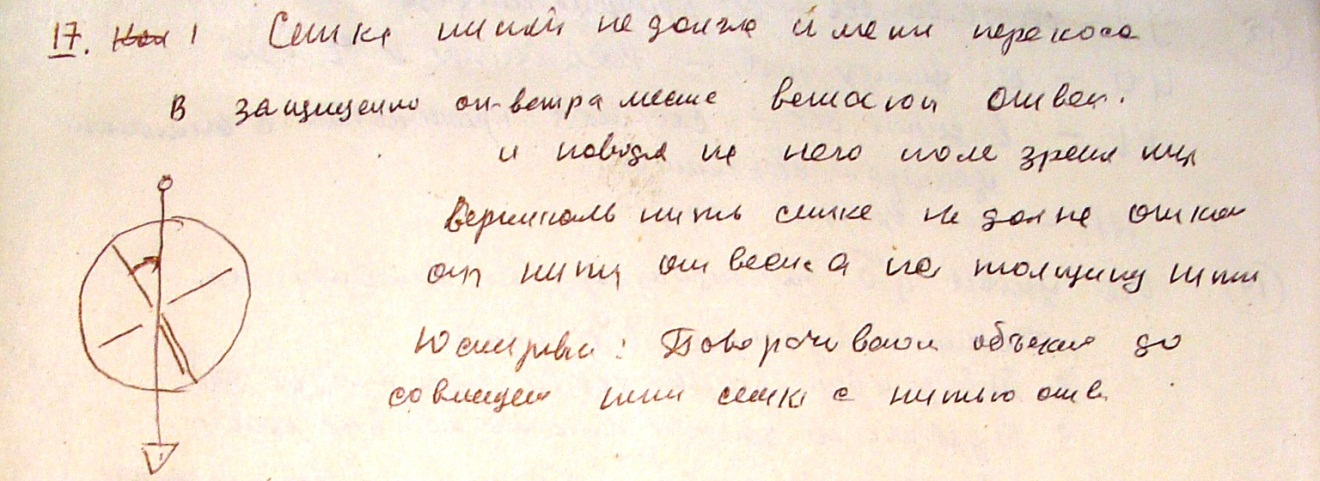 17. 1 Сетка нитей не должна имети перекоса
В защищено от ветра месте вешают отвес.
и наводя на него поле зрения
Вертикаль нить сетке не долне откло
от нити отвеса а на толщину нити
Юстировка: Поворачивают объект до
совмещен нити сетки с нитью отв